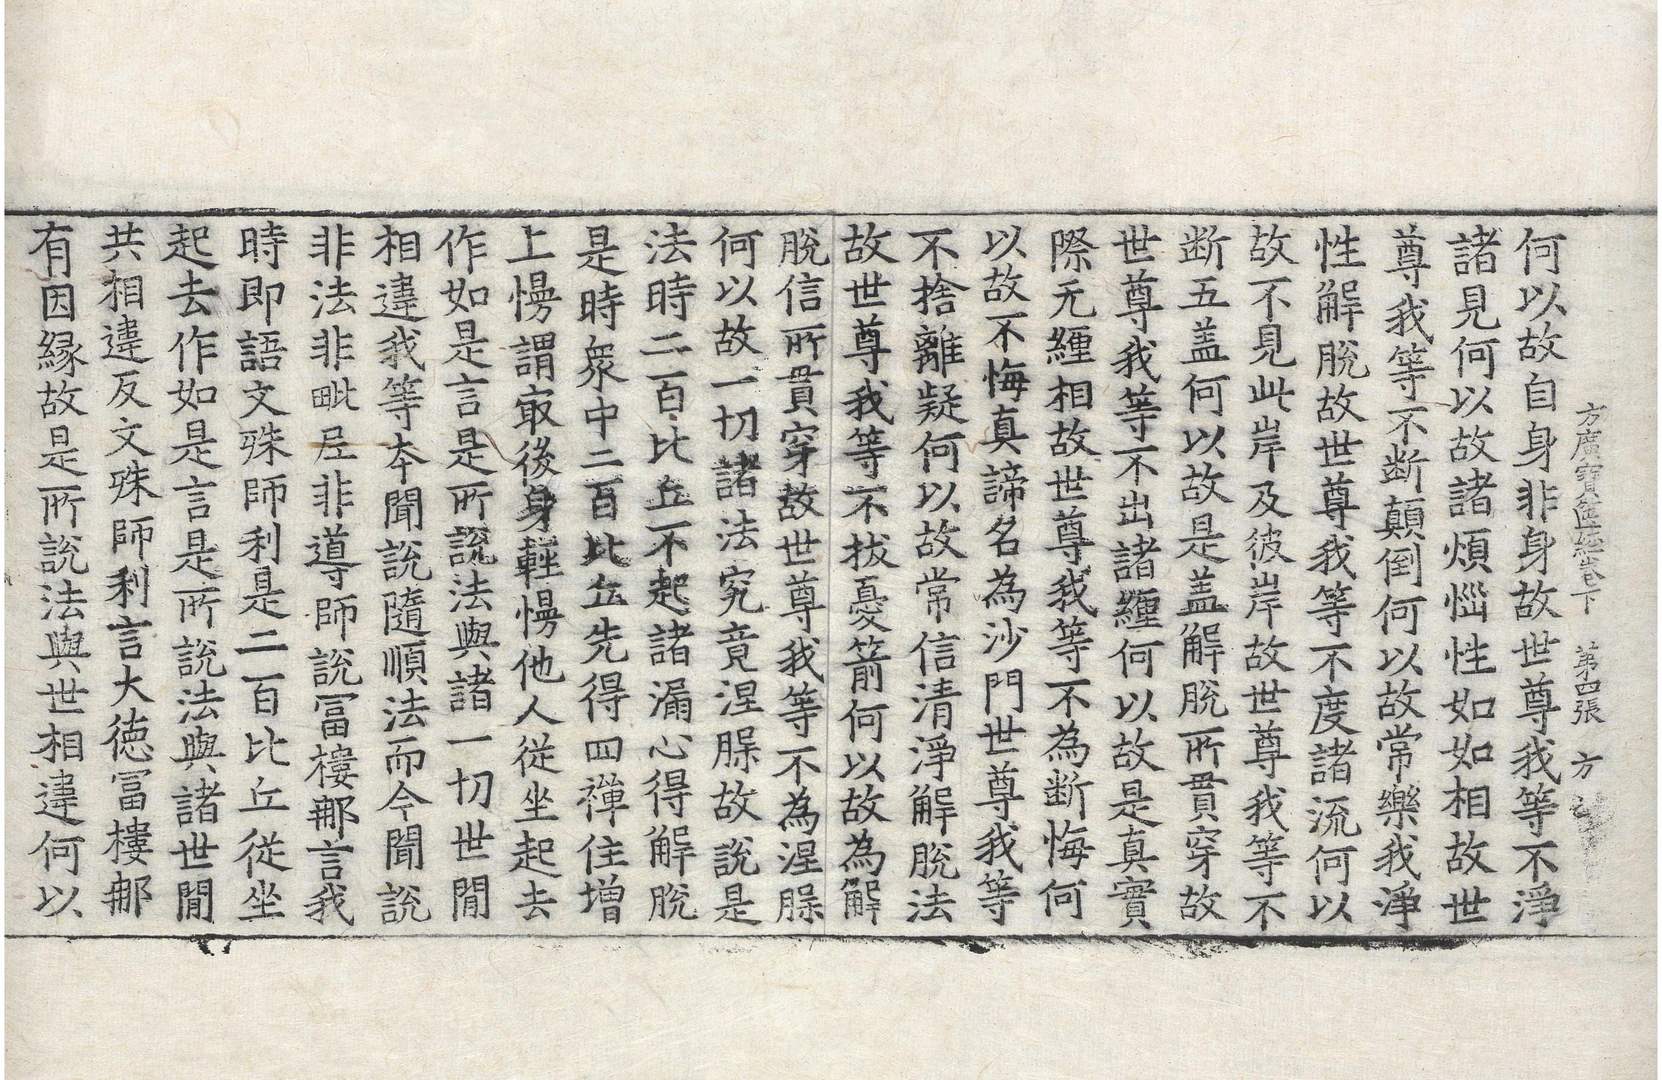 方廣寶篋經卷下 第四張 方
何以故自身非身故世尊我等不淨
諸見何以故諸煩惱性如如相故世
尊我等不断顛倒何以故常樂我淨
性解脫故世尊我等不度諸流何以
故不見此岸及彼岸故世尊我等不
断五盖何以故是盖解脫所貫穿故
世尊我等不出諸纒何以故是真實
際无纒相故世尊我等不為断悔何
以故不悔真諦名為沙門世尊我等
不捨離疑何以故常信清淨解脫法
故世尊我等不拔憂箭何以故為解
脫信所貫穿故世尊我等不為涅槃
何以故一切諸法究竟涅槃故說是
法時二百比丘不起諸漏心得解脫
是時衆中二百比丘先得四禪住增
上慢謂冣後身輕慢他人從坐起去
作如是言是所說法與諸一切世閒
相違我等本聞說隨順法而今聞說
非法非毗尼非導師說冨樓那言我
時即語文殊師利是二百比丘從坐
起去作如是言是所說法與諸世閒
共相違反文殊師利言大德冨樓那
有因緣故是所說法與世相違何以